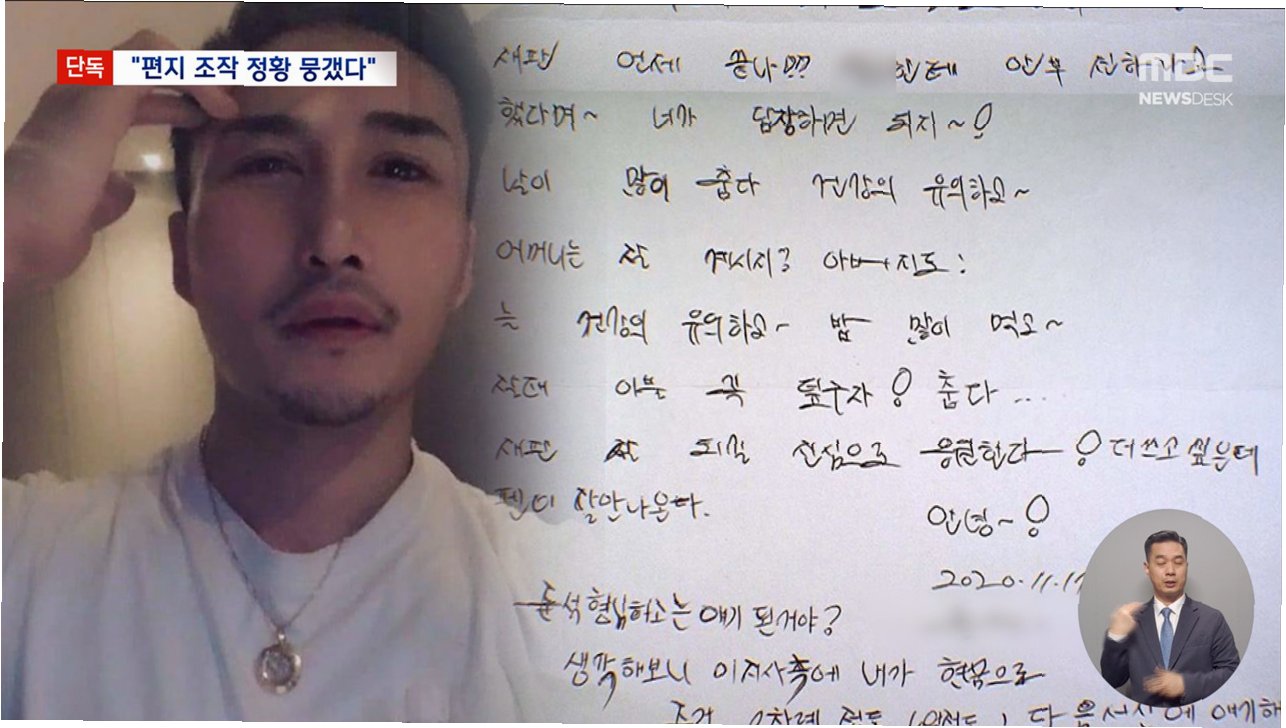 단독 "편지 조작 정황 뭉갰다"
MBC
NEWSDESK
재판 언제 끝나??? 한테 안부 전하라고
했다며~ 너가 답장하면 되지~!
날이 많이 춥다 건강의 유의하고~
어머니는 잘 계시지? 아버지도!
는 건강의 유의하고~ 밥 많이 먹고~
안부 꼭 춥다...
재판 잘 되길 진심으로 응원한다~! 더쓰고 싶은데
펜이 잘안나온다.
안녕~!
2020.11.1
준석형님하고는 얘기 된거야?
생각해보니 이지사측에 내가 현몸으로
조건 다음서신에 얘기해